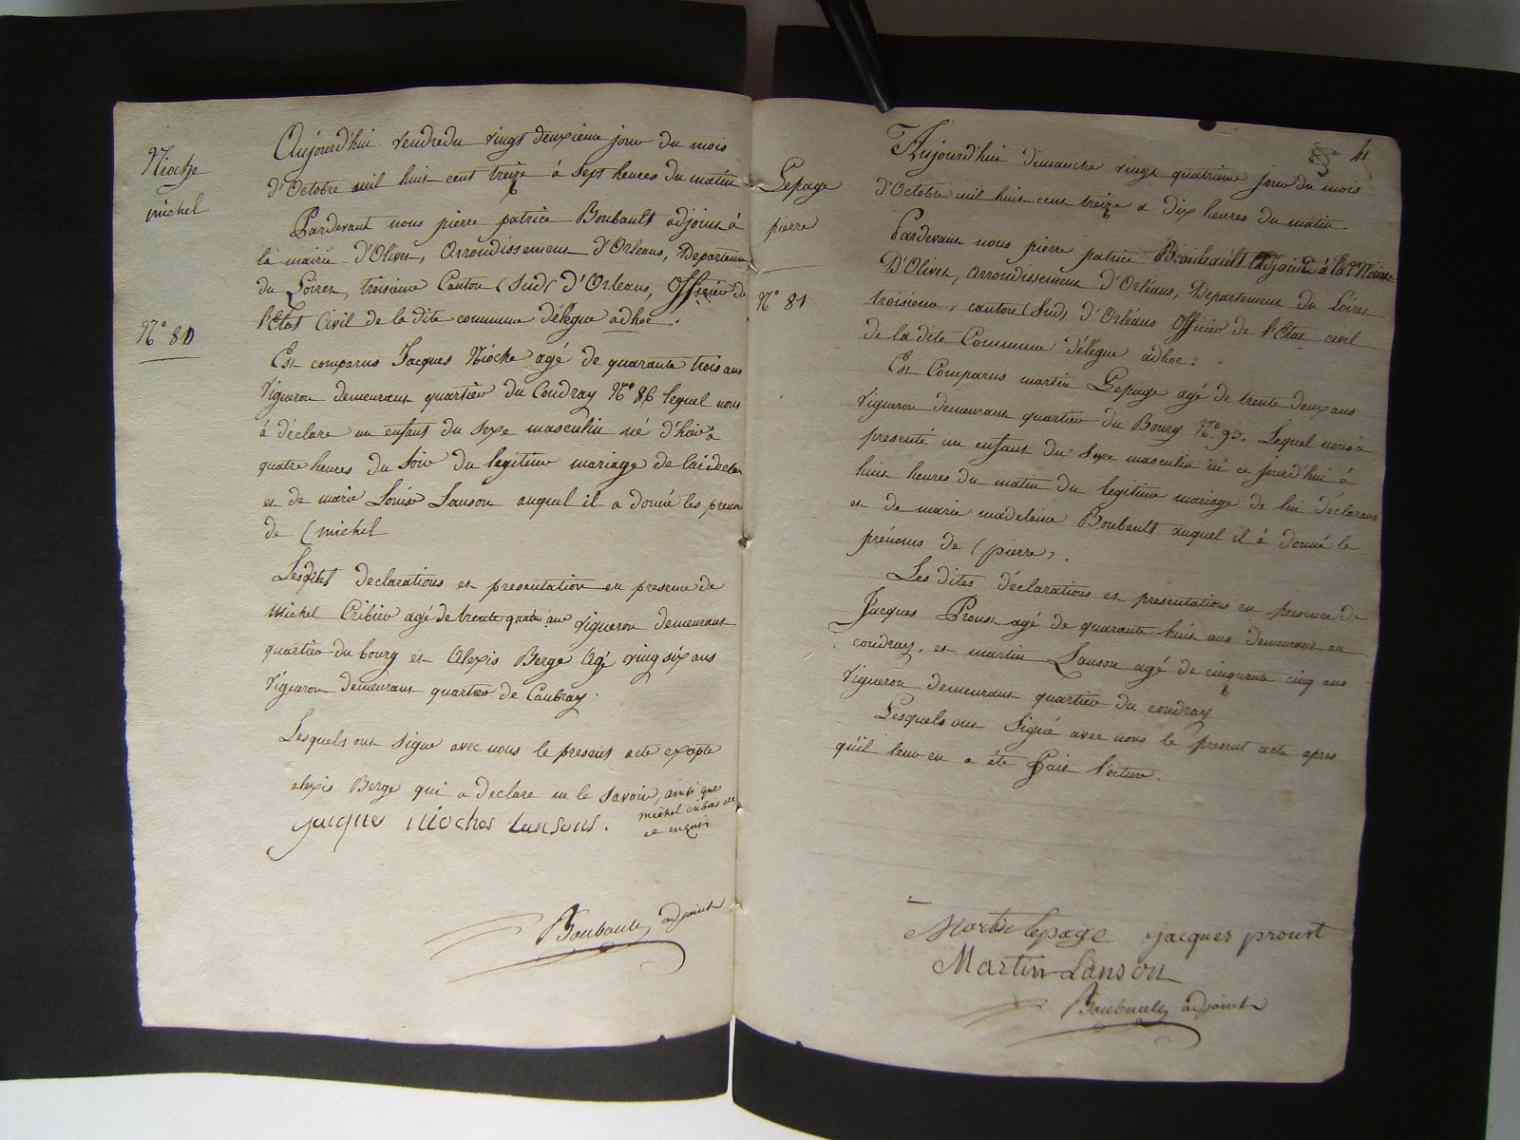 Nioche
michel
N° 80
Aujourd'hui vendredu vingt deuxieme jour du mois
d'Octobre mil huit cent treize à Sept heures du matin
Pardevant nous pierre patrice Boubault adjoint à
la mairie d'Olivet, arrondissement d'Orleans, Departement
du Loiret, troisieme Canton (Sud) d'Orleans, Officier de
l'Etat Civil de la dite commune délegue adhoc.
Est comparus Jacques Nioche agé de quarante trois ans
Vigneron demeurant quartier du Coudray N° 86 lequel nous
à déclare un enfant du Sexe masculin né d'hier à
quatre heures du Soir du legitime mariage de lui declar
et de marie Louise Lanson auquel il a donné les prenom
de (michel
Lesdites declarations et presentation en presence de
Michel Cribier agé de trente quatre ans vigneron demeurant
quartier du bourg et Alexis Berge Agé vingt six ans
Vigneron demeurant quartier de Caubray.
Lesquels ont Signe avec nous le present acte excepte
alexis Berge qui a declare ne le Savoir, ainsi que
michel
ce enquis
jacques nioches Lansons.
Boubault, adjoint
4
Lepage
pierre
N° 81
Aujourd'hui dimanche vingt quatrieme jour du mois
d'Octobre mil huit cent treize a dix heures du matin.
Pardevant nous pierre patrice Boubault Adjoint à la Mairie
D'Olivet, arrondissement d'Orleans, Departement du Loiret
troisieme, canton (Sud) d'Orléans Officier de l'Etat civil
de la dite Commune délegue adhoc:
Est Comparus martin Lepage agé de trente deux ans
vigneron demeurant quartier du Bourg N° 93. Lequel nous a
presenté un enfant du Sexe masculin né ce jourd'hui à
huit heures du matin du legitime mariage de lui déclarant
et de marie madeleine Boubault auquel il à donné le
prénoms de (pierre).
Les dites déclarations et presentations en presence de
Jacques Proust agé de quarante huit ans demeurant au
coudray, et martin Lanson agé de cinquante cinq ans
Vigneron demeurant quartier du coudray
Lesquels ont Signé avec nous le present acte apres
qu'il leur en a été Fait lecture.
Martin lepage jacques proust
Martin Lanson
Boubault, adjoint